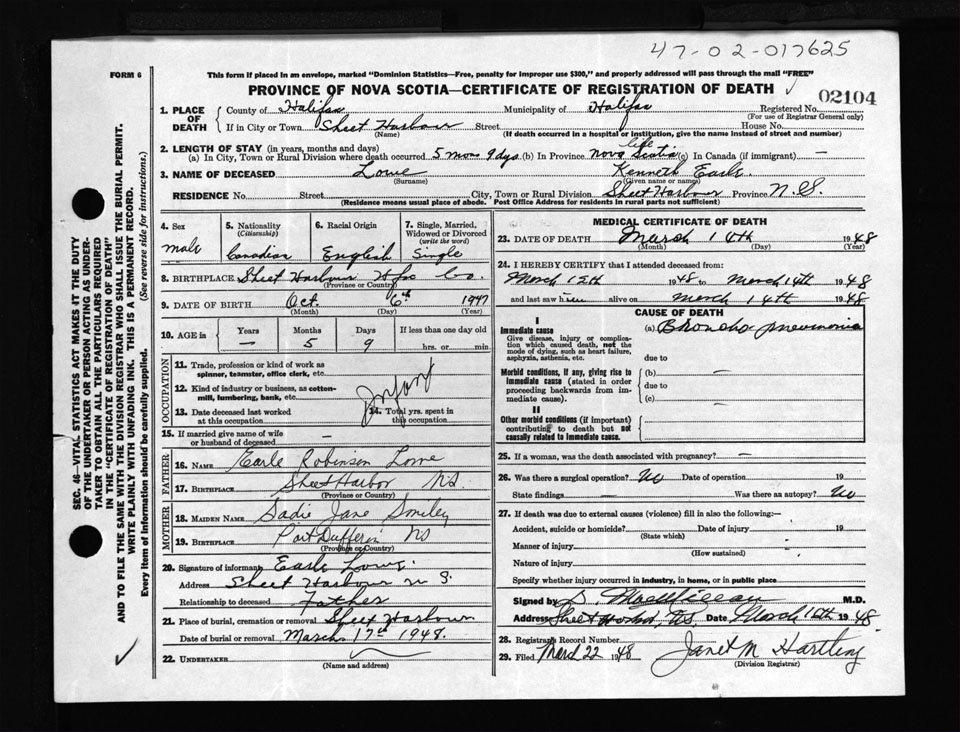 47-02-017625
FORM 6
This form if placed in an envelope, marked "Dominion Statistics—Free, penalty for improper use $300," and properly addressed will pass through the mail "FREE"
PROVINCE OF NOVA SCOTIA—CERTIFICATE OF REGISTRATION OF DEATH
02104
1. PLACE OF DEATH
County of Halifax Municipality of Halifax Registered No.
(For use of Registrar General only)
If in City or Town Sheet Harbour Street House No.
(Name) (If death occurred in a hospital or institution, give the name instead of street and number)
2. LENGTH OF STAY (in years, months and days)
(a) In City, Town or Rural Division where death occurred 5 mons 9 dys. (b) In Province life Nova Scotia (c) In Canada (if immigrant) —
3. NAME OF DECEASED Lowe Kenneth Earle
(Surname) (Given name or names)
RESIDENCE No. Street City, Town or Rural Division Sheet Harbour Province N.S.
(Residence means usual place of abode. Post Office Address for residents in rural parts not sufficient)
4. Sex male
5. Nationality (Citizenship) Canadian
6. Racial Origin English
7. Single, Married, Widowed or Divorced (write the word) Single
8. BIRTHPLACE Sheet Harbour Hfx Co.
(Province or Country)
9. DATE OF BIRTH Oct. 6th 1947
(Month) (Day) (Year)
10. AGE in Years Months Days If less than one day old
— 5 9 hrs. or min.
OCCUPATION
11. Trade, profession or kind of work as spinner, teamster, office clerk, etc.
12. Kind of industry or business, as cotton-mill, lumbering, bank, etc.
Infant
13. Date deceased last worked at this occupation
14. Total yrs. spent in this occupation
15. If married give name of wife or husband of deceased —
FATHER
16. NAME Earle Robinson Lowe
17. BIRTHPLACE Sheet Harbor NS
(Province or Country)
MOTHER
18. MAIDEN NAME Sadie Jane Smiley
19. BIRTHPLACE Port Dufferin NS
(Province or Country)
20. Signature of informant Earle Lowe
Address Sheet Harbour N S.
Relationship to deceased Father
21. Place of burial, cremation or removal Sheet Harbour
Date of burial or removal March 17th 1948.
22. UNDERTAKER
(Name and address)
MEDICAL CERTIFICATE OF DEATH
23. DATE OF DEATH March 14th 1948
(Month) (Day) (Year)
24. I HEREBY CERTIFY that I attended deceased from:
March 12th 1948 to March 14th 1948
and last saw him alive on March 14th 1948
CAUSE OF DEATH
I
Immediate cause
Give disease, injury or complication which caused death, not the mode of dying, such as heart failure, asphyxia, asthenia, etc.
(a) Bhoncho pneumonia
due to
Morbid conditions, if any, giving rise to immediate cause (stated in order proceeding backwards from immediate cause).
(b) —
due to
(c) —
II
Other morbid conditions (if important) contributing to death but not causally related to immediate cause.
25. If a woman, was the death associated with pregnancy? —
26. Was there a surgical operation? No Date of operation 19
State findings — Was there an autopsy? No
27. If death was due to external causes (violence) fill in also the following:—
Accident, suicide or homicide? Date of injury 19
(State which)
Manner of injury
(How sustained)
Nature of injury
Specify whether injury occurred in industry, in home, or in public place
Signed by M.D.
Address Sheet Harbour, NS Date March 16th 1948
28. Registrar's Record Number
29. Filed March 22 1948 Janet M Hartling
(Division Registrar)
SEC. 46—VITAL STATISTICS ACT MAKES IT THE DUTY OF THE UNDERTAKER OR PERSON ACTING AS UNDERTAKER TO OBTAIN ALL THE PARTICULARS REQUIRED IN THE "CERTIFICATE OF REGISTRATION OF DEATH" AND TO FILE THE SAME WITH THE DIVISION REGISTRAR WHO SHALL ISSUE THE BURIAL PERMIT.
WRITE PLAINLY WITH UNFADING INK. THIS IS A PERMANENT RECORD.
Every item of information should be carefully supplied. (See reverse side for instructions.)